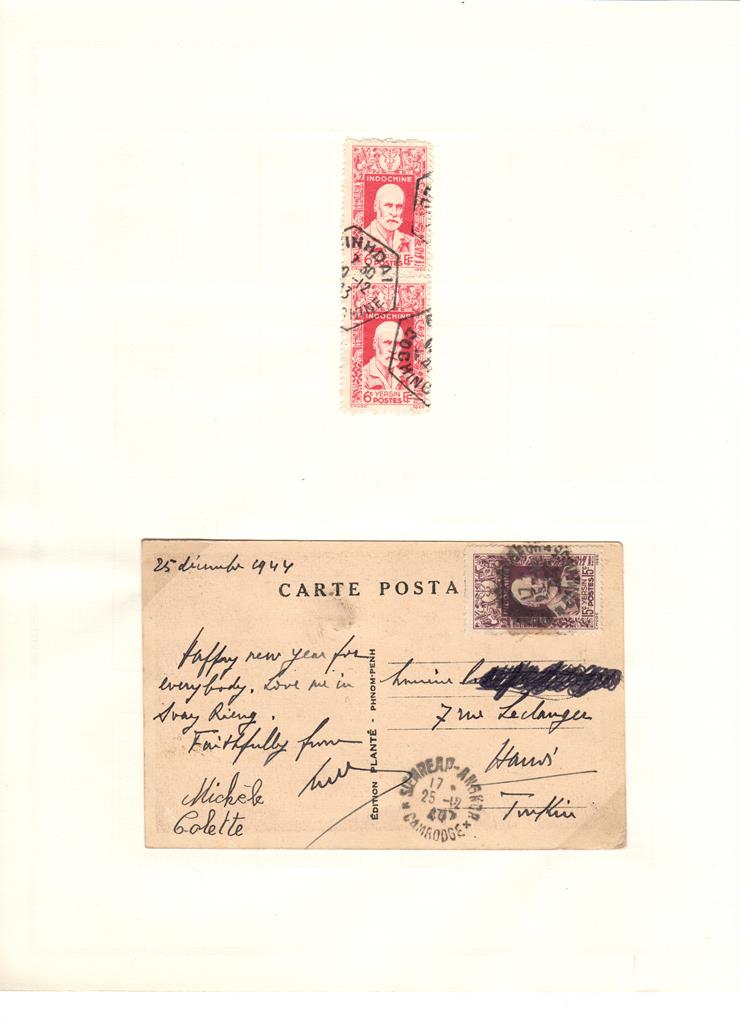 INDOCHINE
6c POSTES
INHDAI
30
-12
INDOCHINE
COCHINC
6c YERSIN
POSTES
25 décembre 1944
CARTE POSTA
15c YERSIN
POSTES 15c
Happy new year for
everybody. Love me in
Svay Rieng.
Faithfully from
Michèle
Colette
ÉDITION PLANTÉ - PHNOM-PENH
7 rue Leclanger
Hanoi
Tonkin
SIEMREAP-ANGKOR
17
25 -12
CAMBODGE